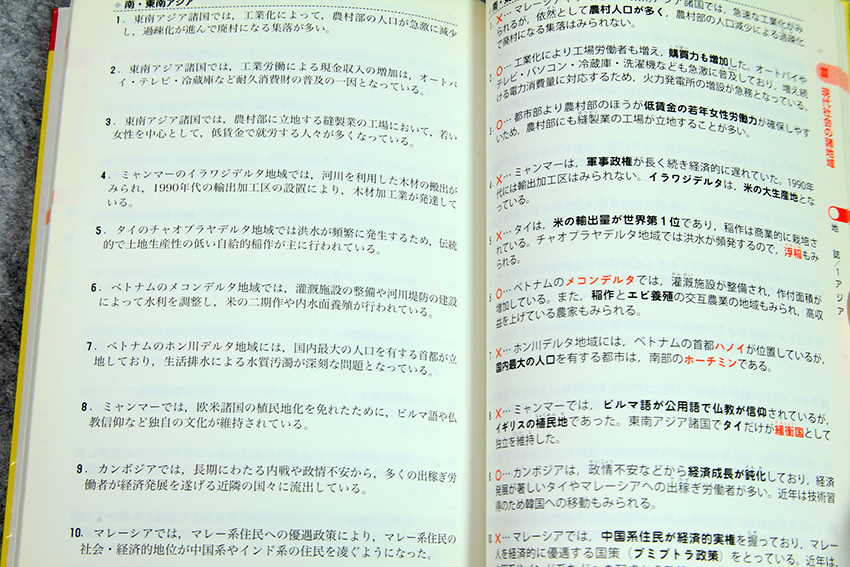 ◆ 南・東南アジア
1. 東南アジア諸国では，工業化によって，農村部の人口が急激に減少
し，過疎化が進んで廃村になる集落が多い。
2. 東南アジア諸国では，工業労働による現金収入の増加は，オートバ
イ・テレビ・冷蔵庫など耐久消費財の普及の一因となっている。
3. 東南アジア諸国では，農村部に立地する縫製業の工場において，若い
女性を中心として，低賃金で就労する人々が多くなっている。
4. ミャンマーのイラワジデルタ地域では，河川を利用した木材の搬出が
みられ，1990年代の輸出加工区の設置により，木材加工業が発達して
いる。
5. タイのチャオプラヤデルタ地域では洪水が頻繁に発生するため，伝統
的で土地生産性の低い自給的稲作が主に行われている。
6. ベトナムのメコンデルタ地域では，灌漑施設の整備や河川堤防の建設
によって水利を調整し，米の二期作や内水面養殖が行われている。
7. ベトナムのホン川デルタ地域には，国内最大の人口を有する首都が立
地しており，生活排水による水質汚濁が深刻な問題となっている。
8. ミャンマーでは，欧米諸国の植民地化を免れたために，ビルマ語や仏
教信仰など独自の文化が維持されている。
9. カンボジアでは，長期にわたる内戦や政情不安から，多くの出稼ぎ労
働者が経済発展を遂げる近隣の国々に流出している。
10. マレーシアでは，マレー系住民への優遇政策により，マレー系住民の
社会・経済的地位が中国系やインド系の住民を凌ぐようになった。
1. ×…マレーシア
東南アジア諸国では，急速な工業化がみ
られるが，依然として農村人口が多く，農村部の人口減少による過疎化
で廃村になる集落はみられない。
2. ○…工業化により工場労働者も増え，購買力も増加した。オートバイや
テレビ・パソコン・冷蔵庫・洗濯機なども急激に普及しており，増え続
ける電力消費量に対応するため，火力発電所の増設が急務となっている。
3. ○…都市部より農村部のほうが低賃金の若年女性労働力が確保しやす
いため，農村部にも縫製業の工場が立地することが多い。
4. ×…ミャンマーは，軍事政権が長く続き経済的に遅れていた。1990年
代には輸出加工区はみられない。イラワジデルタは，米の大生産地とな
っている。
5. ×…タイは，米の輸出量が世界第1位であり，稲作は商業的に栽培さ
れている。チャオプラヤデルタ地域では洪水が頻発するので，浮稲もみ
られる。
6. ○…ベトナムのメコンデルタでは，灌漑施設が整備され，作付面積が
増加している。また，稲作とエビ養殖の交互農業の地域もみられ，高収
益を上げている農家もみられる。
7. ×…ホン川デルタ地域には，ベトナムの首都ハノイが位置しているが，
国内最大の人口を有する都市は，南部のホーチミンである。
8. ×…ミャンマーでは，ビルマ語が公用語で仏教が信仰されているが，
イギリスの植民地であった。東南アジア諸国でタイだけが緩衝国として
独立を維持した。
9. ○…カンボジアは，政情不安などから経済成長が鈍化しており，経済
発展が著しいタイやマレーシアへの出稼ぎ労働者が多い。近年は技術習
得のため韓国への移動もみられる。
10. ×…マレーシアでは，中国系住民が経済的実権を握っており，マレー
人を経済的に優遇する国策（ブミプトラ政策）をとっている。近年は，
現代社会の諸地域
地誌／1アジア